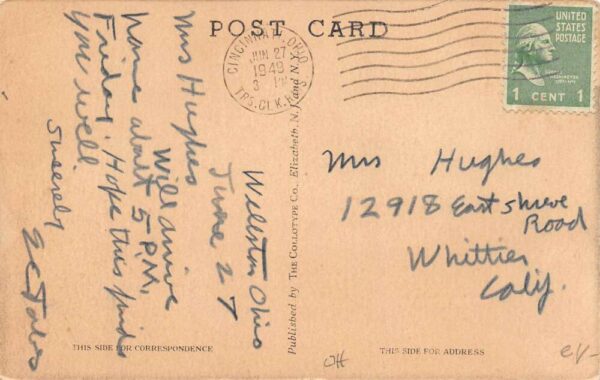 POST CARD
CINCINNATI, OHIO
JUN 27
1949
UNITED
STATES
POSTAGE
WASHINGTON
1 CENT 1
Wellston Ohio
June 27
Mrs Hughes
Will arrive
home about 5 P.M.
Friday. Hope this finds
you well
Sincerely
Published by THE COLLOTYPE CO., Elizabeth, N.J. and N.Y.
Mrs Hughes
12918 East
Road
Whittier
Calif.
THIS SIDE FOR CORRESPONDENCE
THIS SIDE FOR ADDRESS
OH